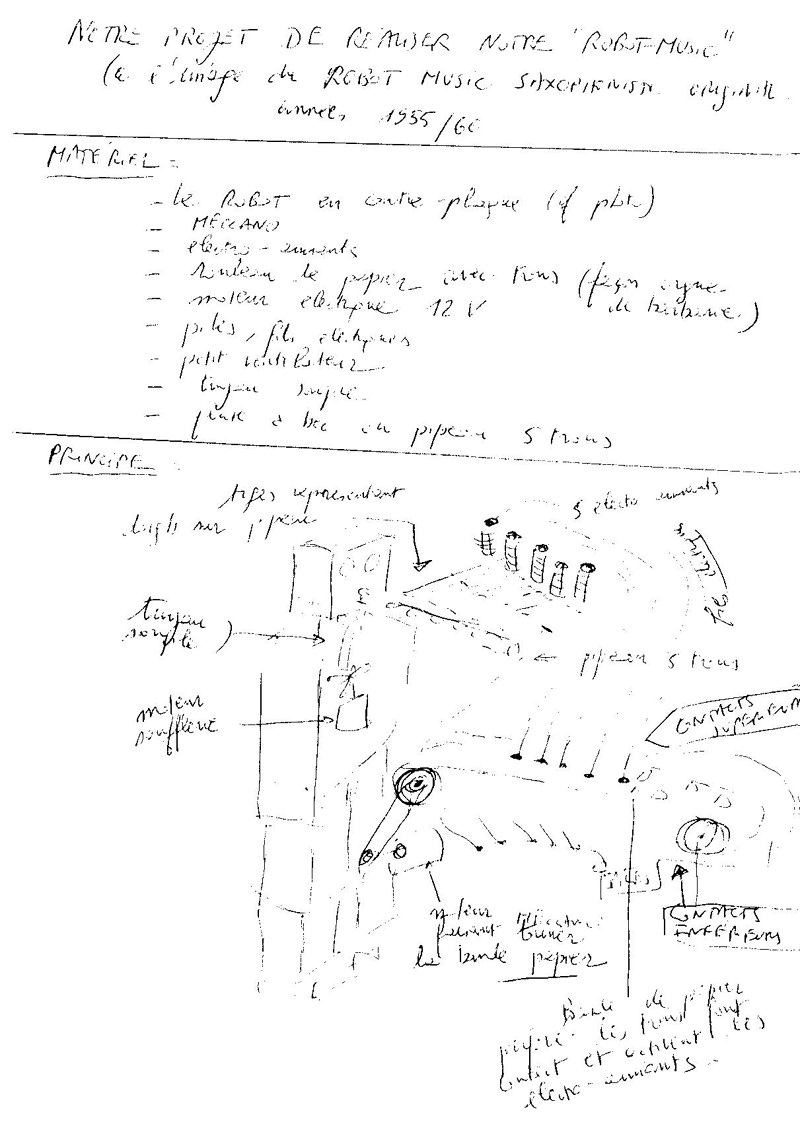 NOTRE PROJET DE REALISER NOTRE "ROBOT-MUSIC"
(à l'image du ROBOT MUSIC SAXOPHONISTE original
années 1955/60
MATÉRIEL =
- le ROBOT en contre-plaqué (cf photo)
- MECCANO
- electro-aimants
- rouleau de papier avec trous (façon orgue
de barbarie)
- moteur electrique 12 V
- piles, fils electriques
- petit ventilateur
- tuyau souple
- flute à bec ou pipeau 5 trous
PRINCIPE
tiges representant
doigts sur pipeau
5 electo aimants
tuyau
souple
pipeau 5 trous
moteur
soufflerie
CONTACTS
SUPERIEURS
[PILES]
CONTACTS
INFERIEURS
moteur electrique
faisant tourner
la bande papier
Bande de papier
perforé - les trous font
contact et activent les
electro-aimants